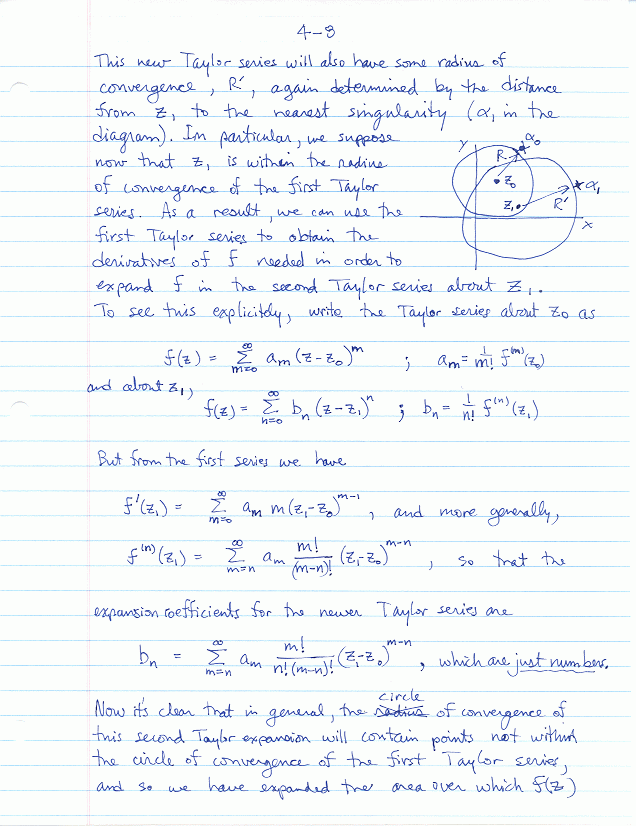 4-8
This new Taylor series will also have some radius of
convergence, R', again determined by the distance
from z₁ to the nearest singularity (α₁ in the
diagram). In particular, we suppose
now that z₁ is within the radius
of convergence of the first Taylor
series. As a result, we can use the
first Taylor series to obtain the
derivatives of f needed in order to
expand f in the second Taylor series about z₁.
y
R
α₀
z₀
α₁
z₁
R'
x
To see this explicitly, write the Taylor series about z₀ as
f(z) = ∑_{m=0}^{∞} a_m (z-z₀)^m ; a_m = 1/m! f^{(m)}(z₀)
and about z₁,
f(z) = ∑_{n=0}^{∞} b_n (z-z₁)^n ; b_n = 1/n! f^{(n)}(z₁)
But from the first series we have
f'(z₁) = ∑_{m=0}^{∞} a_m m(z₁-z₀)^{m-1}, and more generally,
f^{(n)}(z₁) = ∑_{m=n}^{∞} a_m m!/(m-n)! (z₁-z₀)^{m-n}, so that the
expansion coefficients for the newer Taylor series are
b_n = ∑_{m=n}^{∞} a_m m!/(n!(m-n)!) (z₁-z₀)^{m-n}, which are just numbers.
circle
Now it's clear that in general, the radius of convergence of
this second Taylor expansion will contain points not within
the circle of convergence of the first Taylor series,
and so we have expanded the area over which f(z)